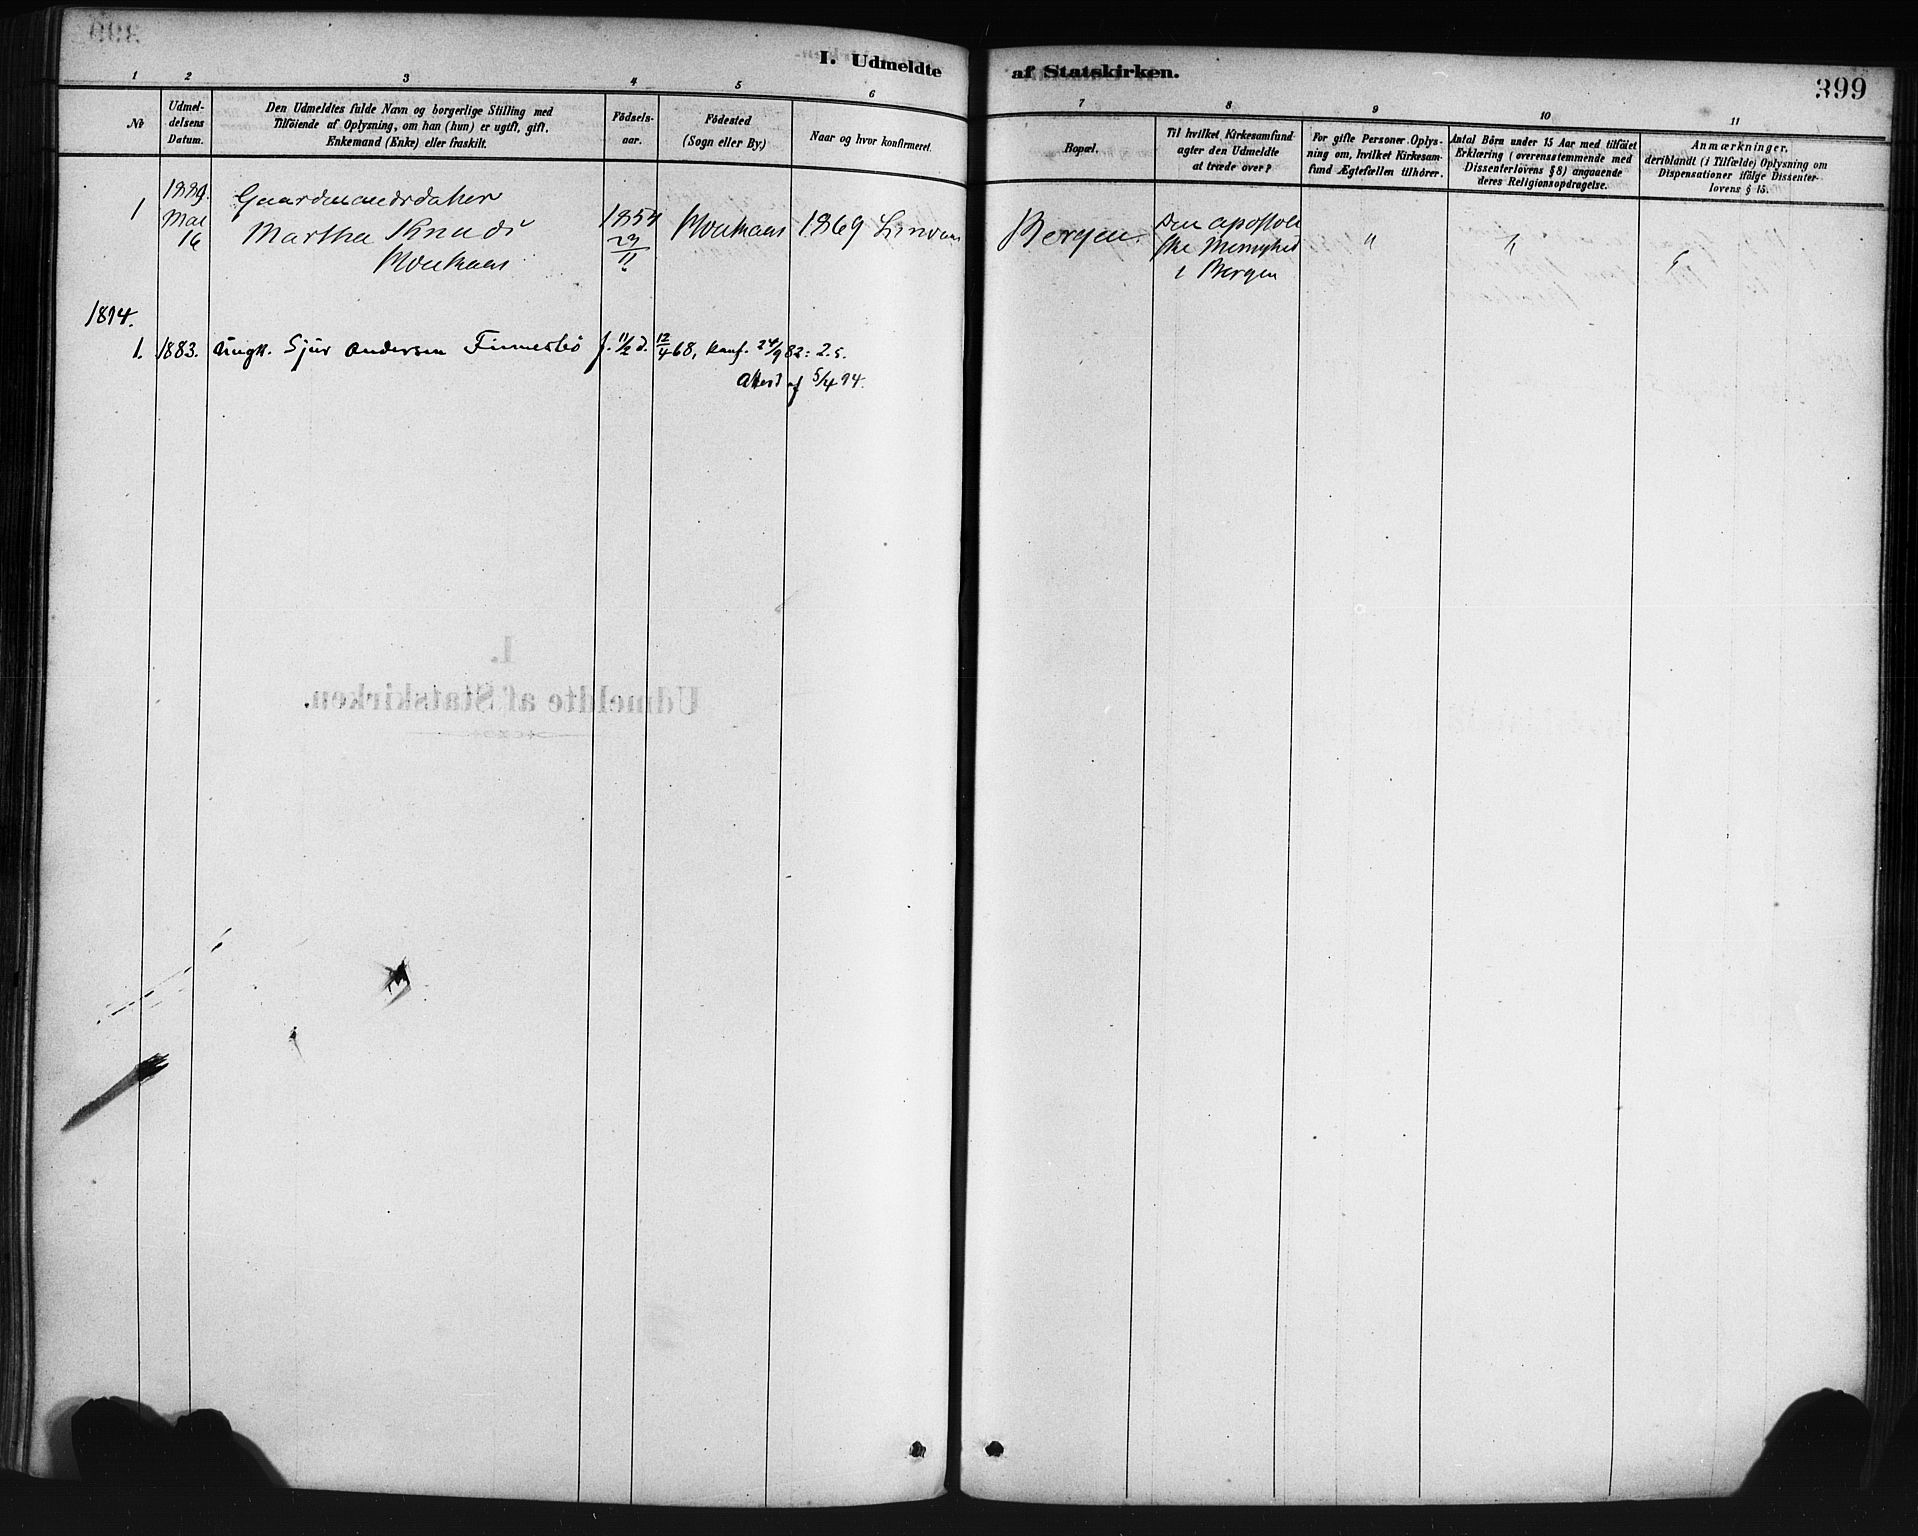 I. Udmeldte af Statskirken.
399
1 2 3 4 5 6 7 8 9 10 11
№
Udmel-
delsens
Datum.
Den Udmeldtes fulde Navn og borgerlige Stilling med
Tilföiende af Oplysning, om han (hun) er ugift, gift,
Enkemand (Enke) eller fraskilt.
Födsels-
aar.
Födested
(Sogn eller By.)
Naar og hvor konfirmeret.
Bopæl.
Til hvilket Kirkesamfund
agter den Udmeldte
at træde over?
For gifte Personer Oplys-
ning om, hvilket Kirkesam-
fund Ægtefællen tilhörer.
Antal Börn under 15 Aar med tilföiet
Erklæring (overensstemmende med
Dissenterlovens § 8) angaaende
deres Religionsopdragelse.
Anmærkninger,
deriblandt (i Tilfælde) Oplysning om
Dispensationer ifölge Dissenter-
lovens § 15.
1
1889.
Mai
16
Gaardmandsdatter
Martha Knuds
1854
29/11
1869
Bergen
Den apostoli
ske Menighed
i Bergen
"
"
"
1894.
1. 1883. Ungk. Sjur Andersen Finnesbö f. 11/2 d. 12/4 68, konf. 24/9 82: 2. s.
Attest af 5/4 94.
I.
Udmeldte af Statskirken.